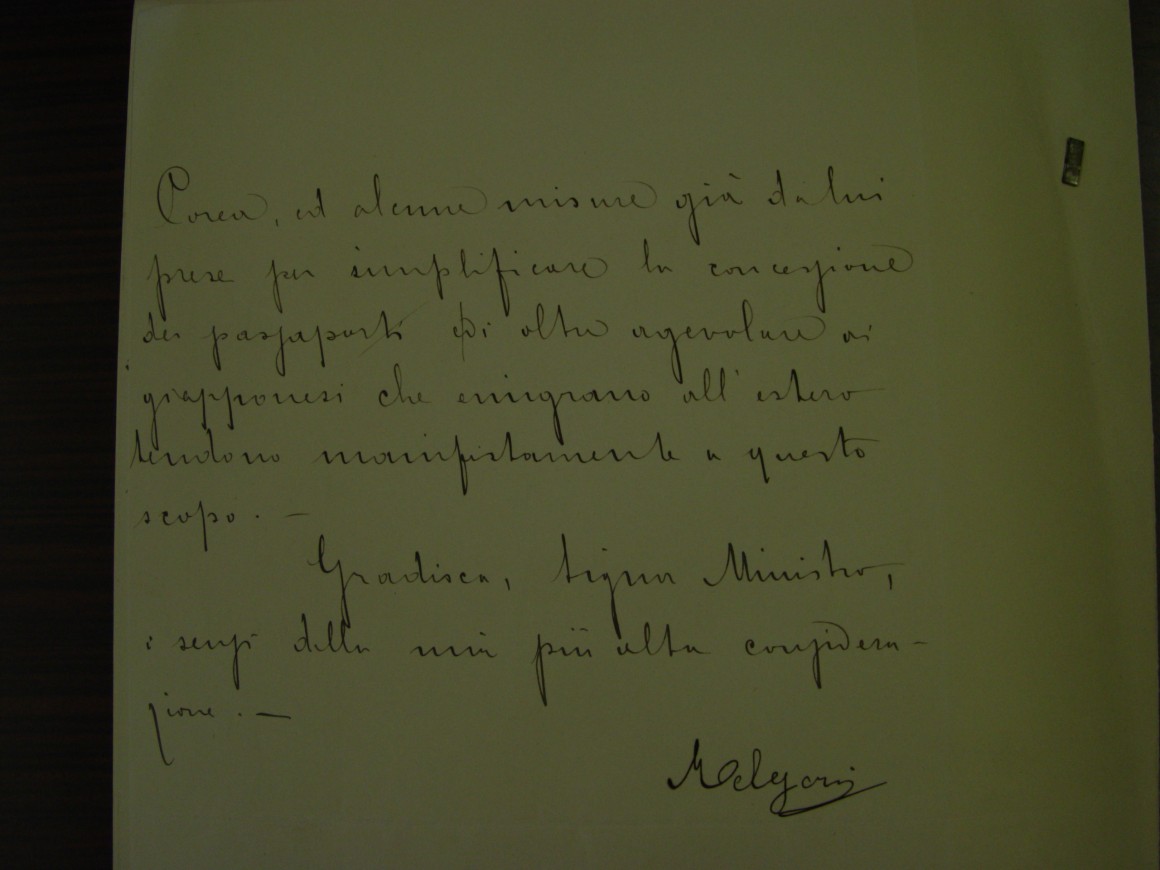 Corea, ed alcune misure già da lui
prese per simplificare la concessione
dei passaporti di altre agevolare ai
giapponesi che emigrano all'estero
tendono manifestamente a questo
scopo. —
Gradisca, Signor Ministro,
i sensi della mia più alta considera-
zione. —
Melegari